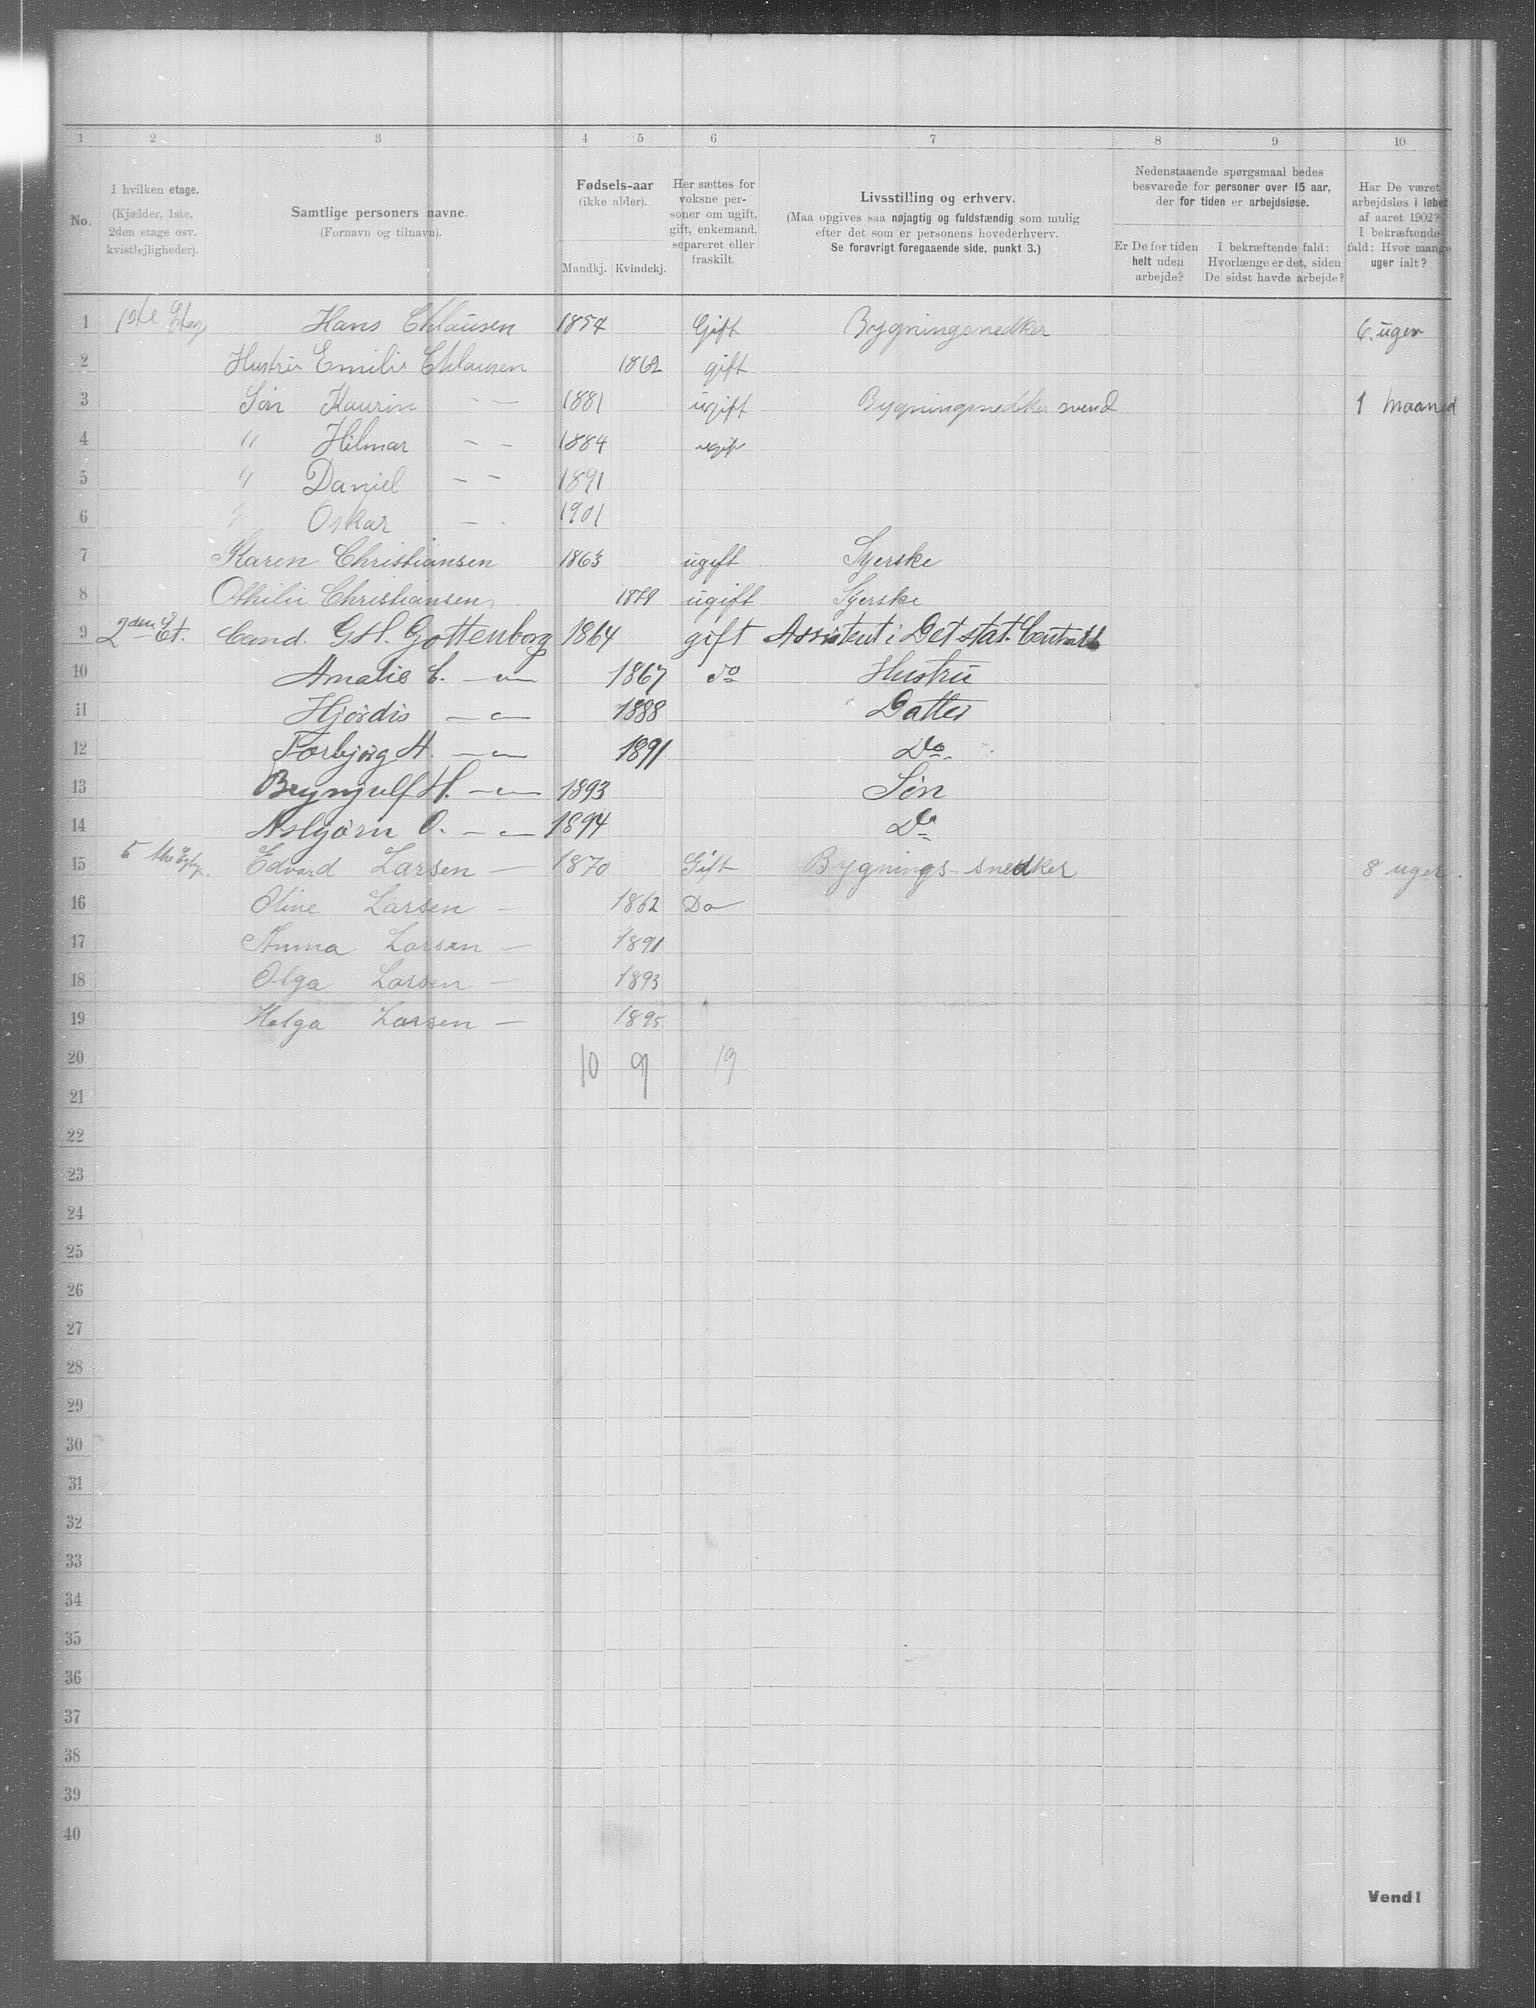 1 2 3 4 5 6 7 8 9 10
No.
I hvilken etage.
(Kjælder, 1ste,
2den etage osv.
kvistlejligheder).
Samtlige personers navne.
(Fornavn og tilnavn).
Fødsels-aar
(ikke alder).
Mandkj. Kvindekj.
Her sættes for
voksne per-
soner om ugift,
gift, enkemand,
separeret eller
fraskilt.
Livsstilling og erhverv.
(Maa opgives saa nøjagtig og fuldstændig som mulig
efter det som er personens hovederhverv.
Se forøvrigt foregaaende side, punkt 3.)
Nedenstaaende spørgsmaal bedes
besvarede for personer over 15 aar,
der for tiden er arbejdsløse.
Er De for tiden
helt uden
arbejde?
I bekræftende fald:
Hvorlænge er det, siden
De sidst havde arbejde?
Har De været
arbejdsløs i løbet
af aaret 1902?
I bekræftende
fald: Hvor mange
uger ialt?
1 1ste Etage Hans Chlausen 1854 Gift Bygningsnedker 6 uger
2 Hustru Emilie Chlausen 1862 gift
3 Søn Kaurin - - 1881 ugift Bygningsnedker svend 1 maaned
4 " Hilmar - - 1884 ugift
5 " Daniel - - 1891
6 " Oskar - - 1901
7 Karen Christiansen 1863 ugift Syerske
8 Othilie Christiansen 1879 ugift Syerske
9 2den Et. Cand. G.H. Gottenborg 1864 gift Assistent i Det stat. Centralb
10 Amalie C. — " — 1867 do Hustru
11 Hjørdis — " — 1888 Datter
12 Torbjørg A. — " — 1891 Do
13 Brynjulf H. — " — 1893 Søn
14 Asbjørn O. — " — 1894 Do
15 5 Edvard Larsen — 1870 Gift Bygnings-snedker 8 uger.
16 Oline Larsen — 1862 Do
17 Anna Larsen — 1891
18 Olga Larsen — 1893
19 Helga Larsen — 1895
20 10 9 19
21
22
23
24
25
26
27
28
29
30
31
32
33
34
35
36
37
38
39
40
Vend!